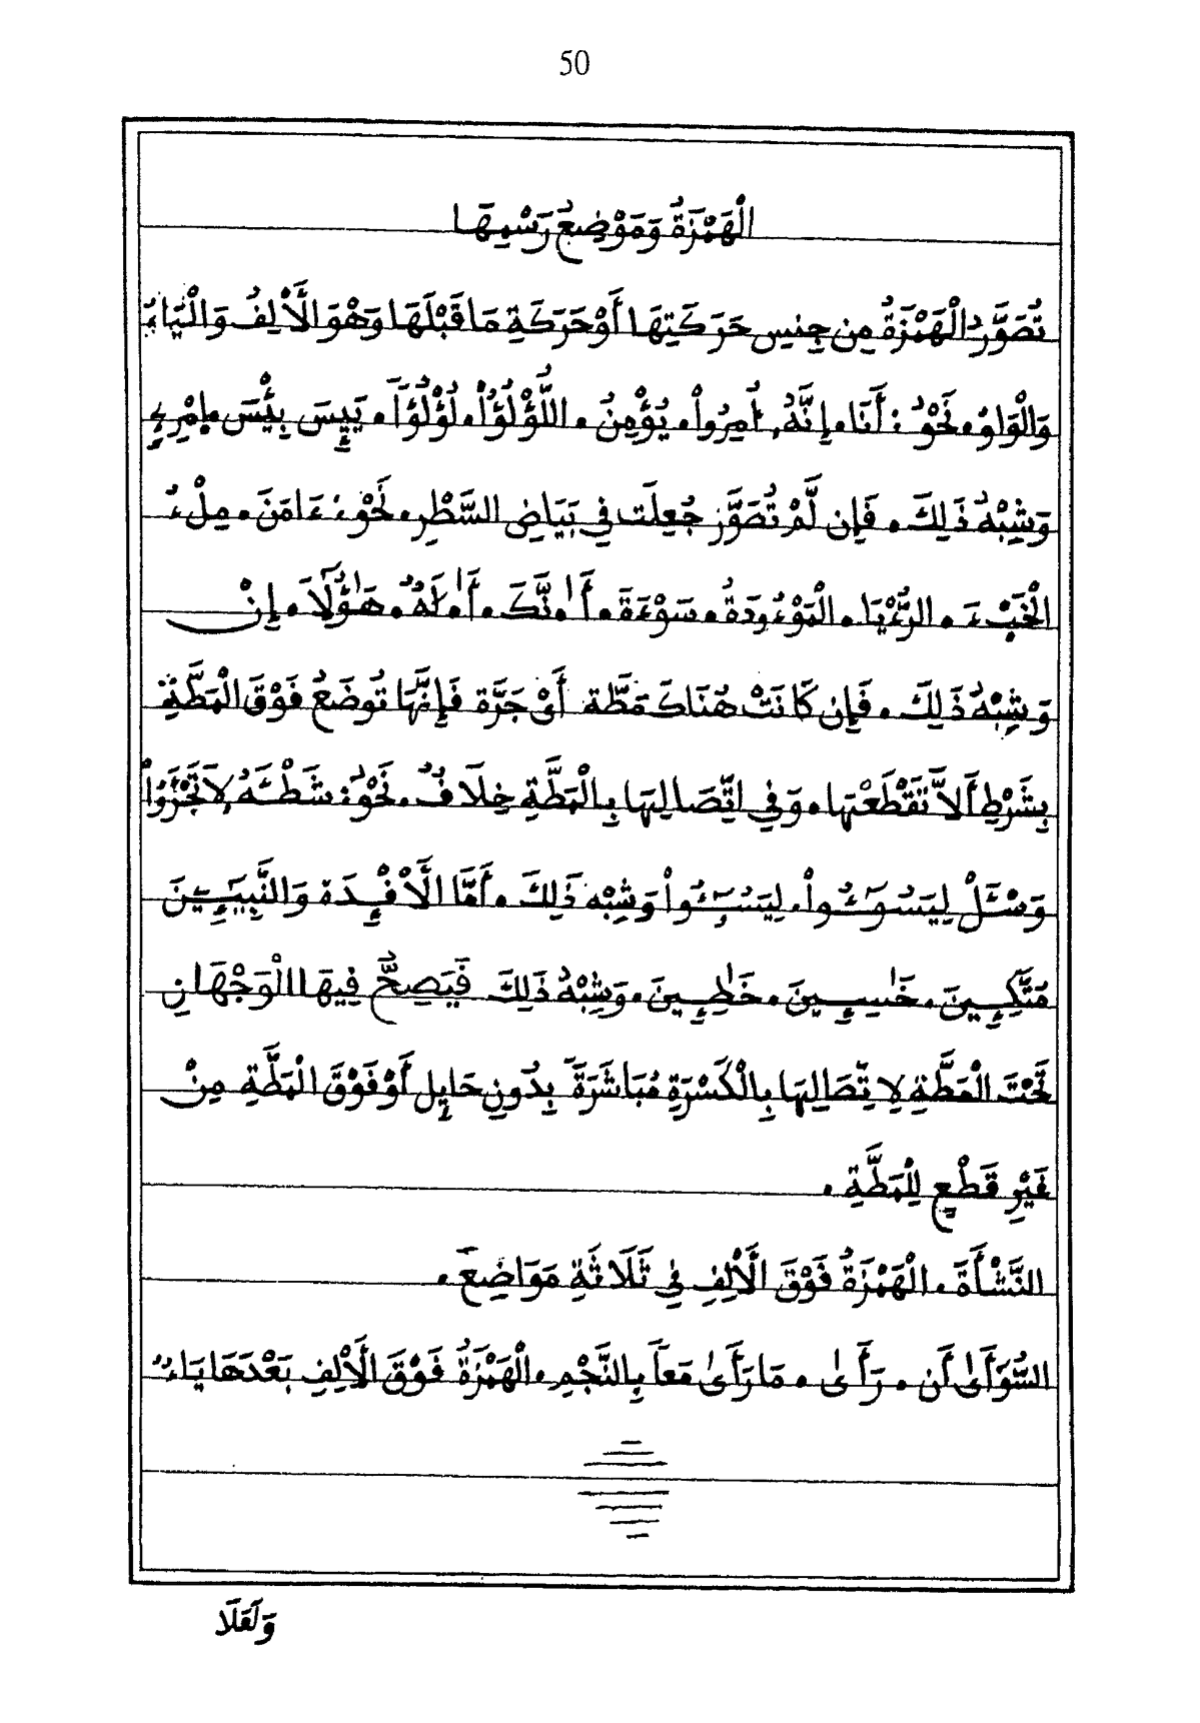 50
الْهَمْزَةُ وَمَوْضِعُ رَسْمِهَا
تُصَوَّرُ الْهَمْزَةُ مِن جِنسِ حَرَكَتِهَا أَوْ حَرَكَةِ مَا قَبْلَهَا وَهْوَ الَألِفُ وَالْيَاءُ
وَالْوَاوُ. نَحْوُ: أَنَا. إِنَّهُ, أُمِرُواْ. يُؤْمِنُ. اللُّؤْلُؤُاْ. لُؤْلُؤاً. يَيِٕسَ بِئْسَ. اِمْرِےٕ
وَشِبْهُ ذَلِكَ. فَإِن لَّمْ تُصَوَّرْ جُعِلَت فِي بَيَاضِ السَّطْرِ. نَحْوُ: ءَامَنَ. مِلْءُ
الْخَبْءَ. الرُّءْيَا. الْمَوْءُودَةُ. سَوْءَةَ. أَ. نَّكَ. أَ. لَهٌ. هَٰؤُلَآ. إِنْ
وَشِبْهُ ذَلِكَ. فَإِن كَانَتْ هُنَاكَ مَطَّة أَوْ جَرَّة فَإِنَّهَا تُوضَعُ فَوْقَ الْمَطَّةِ
بِشَرْطِ أَلاَّ تَقْطَعْهَا. وَفِي اتِّصَالِهَا بِالْمَطَّةِ خِلَافٌ. نَحْوُ: شَطْـَٔهُ, لَا تَجْـَٔرُواْ
وَسْـَٔلْ لِيَسُـۥٓـُٔواْ. لِيَسُـۥٓـُٔواْ وَشِبْهِ ذَلِكَ. أَمَّا الَافْـِٕدَة وَالنَّبِيَـِٕينَ
مُتَّكِـِٕينَ. خَٰسِـِٕينَ. خَٰطِـِٕينَ. وَشِبْهُ ذَلِكَ فَيَصِحُّ فِيهَا الْوَجْهَانِ
تَحْتَ الْمَطَّةِ لِاتِّصَالِهَا بِالْكَسْرَةِ مُبَاشَرَةً بِدُونِ حَايِٕلٍ أَوْ فَوْقَ الْمَطَّةِ مِنْ
غَيْرِ قَطْعٍ لِلْمَطَّةِ.
النَّشْأَةَ. الْهَمْزَةُ فَوْقَ الَألِفِ فِي ثَلَاثَةِ مَوَاضِعَ.
السُّوَأَىٰ أَن. رَأَىٰ. مَا رَأَىٰ مَعاً بِالنَّجْمِ. الْهَمْزَةُ فَوْقَ الَألِفِ بَعْدَهَا يَاءٌ
وَلَقَلَا